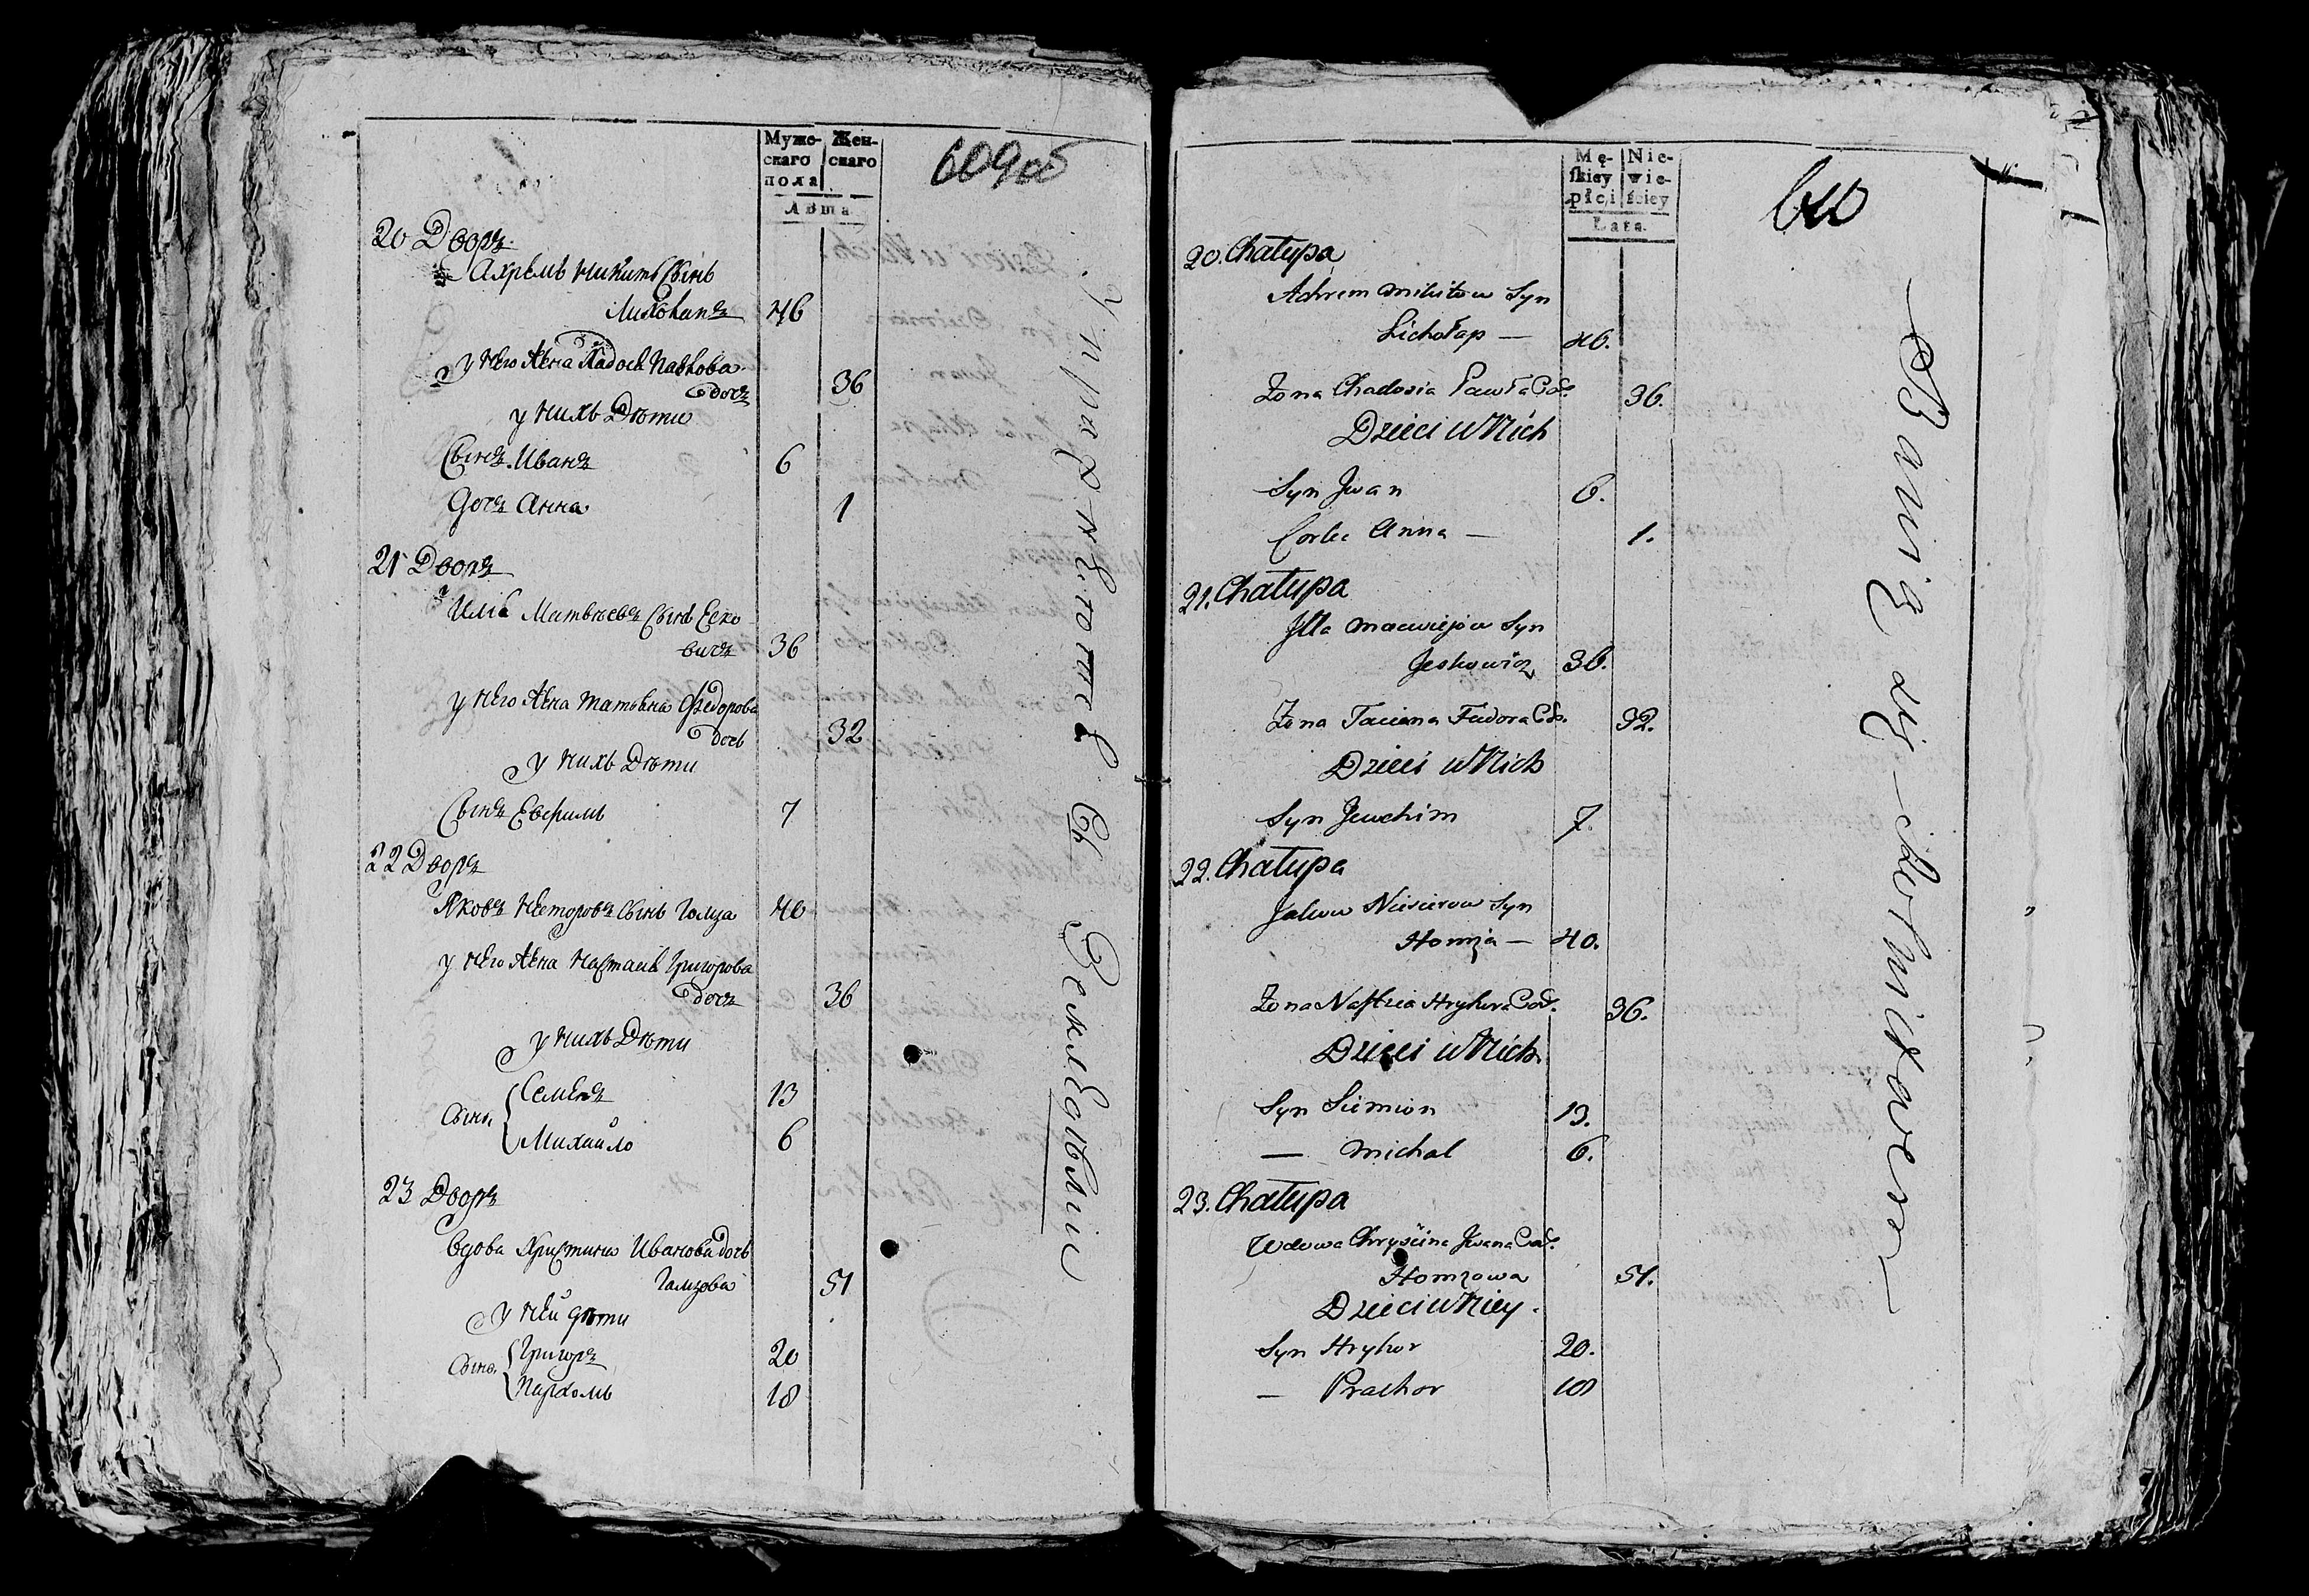 Муже-
скаго
пола
Жен-
скаго
Лѣта
609об
20 Дворъ
Ахремъ Никитъ Сынъ
Лихолапъ 46
у него жена Хадося Павлова
дочъ 36
у нихъ Дѣти
Сынъ Иванъ 6
дочъ Анна 1
21 Дворъ
Илія Матвѣевъ Сынъ Еско
вичъ 36
у него жена татьяна Федорова
дочь 32
у нихъ Дѣти
Сынъ Евфимъ 7
22 Дворъ
Яковъ Несторовъ Сынъ Гомза 40
у него жена Настасья Григорова
дочъ 36
у нихъ Дѣти
Сыны Семенъ 13
Михайло 6
23 Дворъ
вдова Христина Иванова дочь
Гомзова 51
у ней дѣти
Сыны Григоръ 20
18
Mę-
skiey
płci
Nie-
wie-
ściey
Lata
610
20. Chałupa
Achrem Mikitow Syn
Lichołap — 46.
Żona Chadosia Pawła Cór. 36.
Dzieci u Nich
Syn Jwan 6.
Corka Anna — 1.
21. Chałupa
Jlla Maciejow Syn
Jeskowicz 36.
Żona Taciana Fiedora Cór. 32.
Dzieci u Nich
Syn Jewchim 7.
22. Chałupa
Jakow Niesterow Syn
Homza — 40.
Żona Nastzia Hryhora Cór. 36.
Dzieci u Nich
Syn Siemion 13.
— Michal 6.
23. Chałupa
Wdowa Chryścina Jwana Cór.
Homzowa 51.
Dzieci u Niey.
Syn Hryhor 20.
— Prachor 18